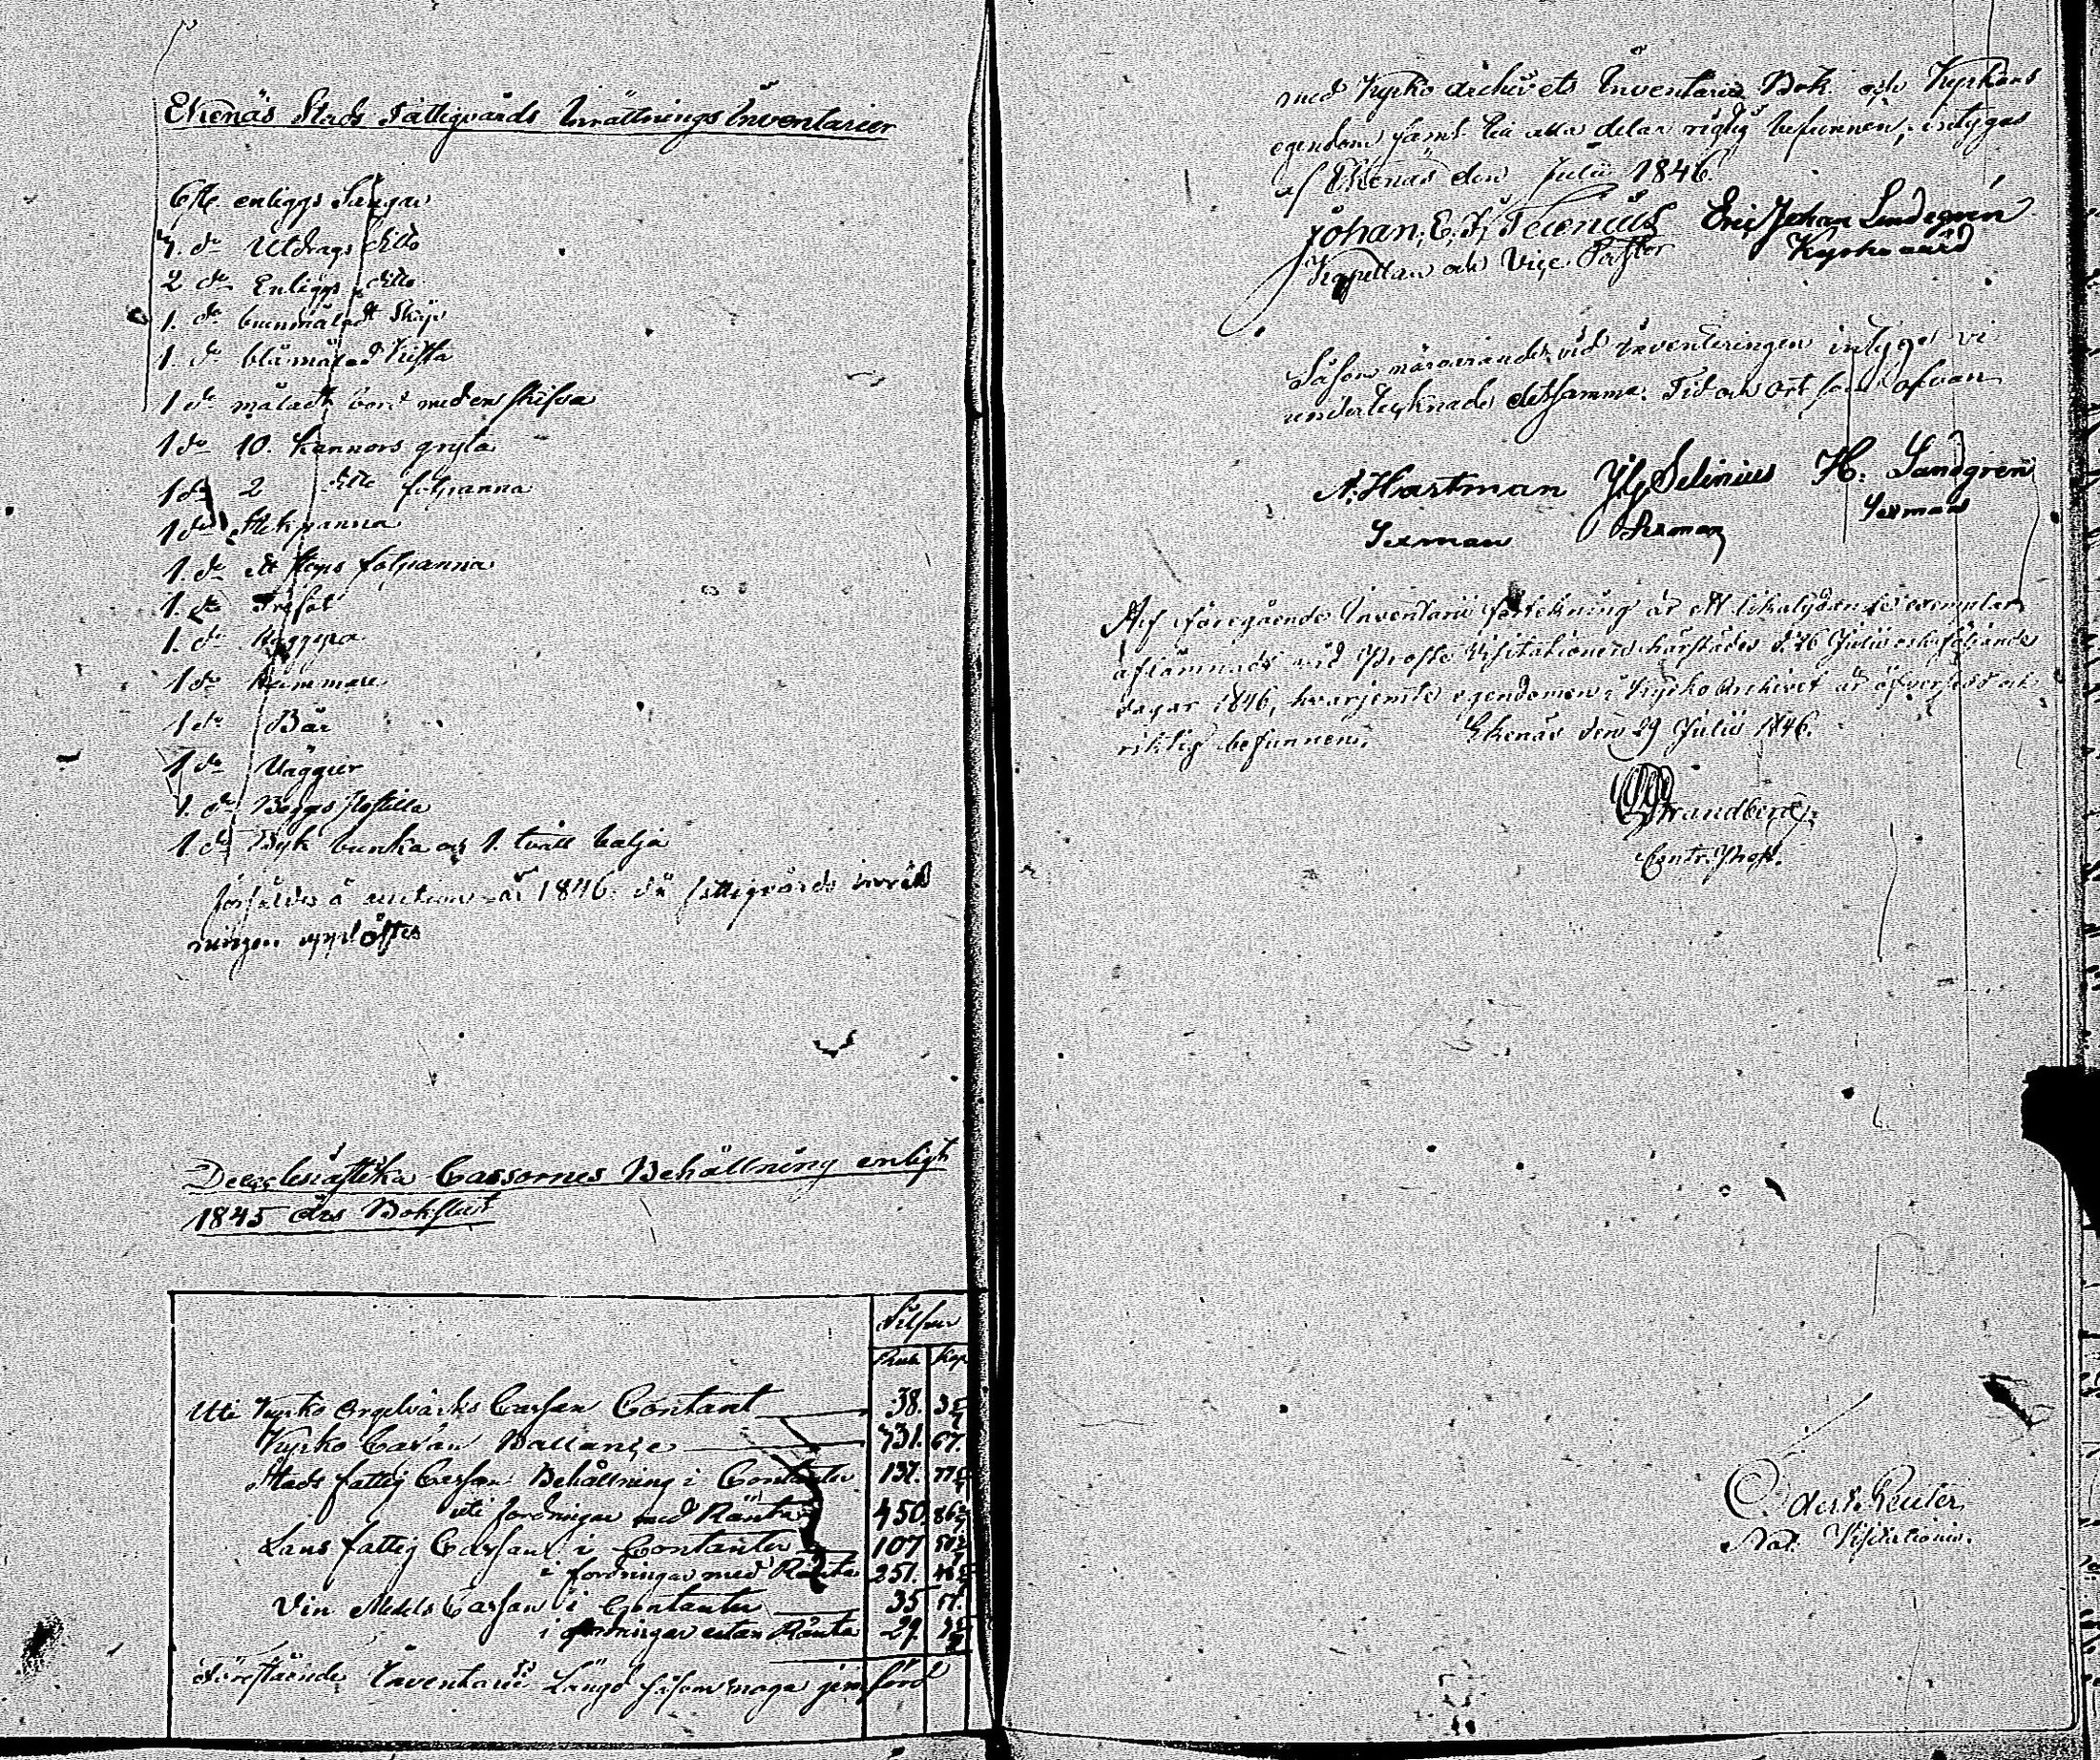 Ekenäs Stads Fattigvårds Inrättnings Inventarier
6 st enliggs Sängar
7. do Utdrags ditto
2 do Enliggs ditto
1. do brunmåladt Skåp
1. do blåmålad Kista
1 do måladt bord med en skifva
1 do 10. kannors gryta
1 do 2 ditto fotpanna
1 do Stekpanna
1. do ett stops fotpanna
1. do Trefot
1. do
1 do
1 do Bår
1 do Väggur
1. do Postilla
1. do Byk bunka och 1. tvätt balja
försåldes å auction år 1846. då fattigvårds inrätt
ningen upplöstes
De Ecclesiastika Cassornes Behållning enligt
1845 års Bokslut
Silfver
Rub. Kop.
Uti Kyrko Orgelvärks Cassan Contant 38.
Kyrko Cassan Ballance 731. 67.
Stads fattig Cassan Behållning i Contanter 137.
uti fordringar med Ränta 450
Lans fattig Cassan i Contanter 107
i fordringar med Ränta 251.
Vin Medels Cassan i Contanter 35
i fordringar utan Ränta 29.
Förestående Inventarii Längd såsom noga jemförd
med Kyrko Archivets Inventarie Bok och Kyrkans
egendom samt till alla delar rigtig befunnen, intygas
af Ekenäs den Julii 1846.
Johan E. F. Eric Johan Lindegrén
Kapellan och Vice Pastor Kyrkovärd
Såsom närvarande vid inventeringen intyga vi
undertecknade detsamma. Tid och Ort som ofvan
A. Hartman Selinius H. Sandgren
Sexman Sexman Sexman
Af föregående Inventarii förtekning är ett likalydande exemplar
aflämnadt vid Prosts Visitationen härstädes d. 26 Julii och följande
dagar 1846, hvarjemte egendomen i Kyrko Archivet är öfversedd och
riktig befunnen. Ekenäs den 29 Julii 1846.
Strandberg,
Contr. Prost.
Not. Visitationis.